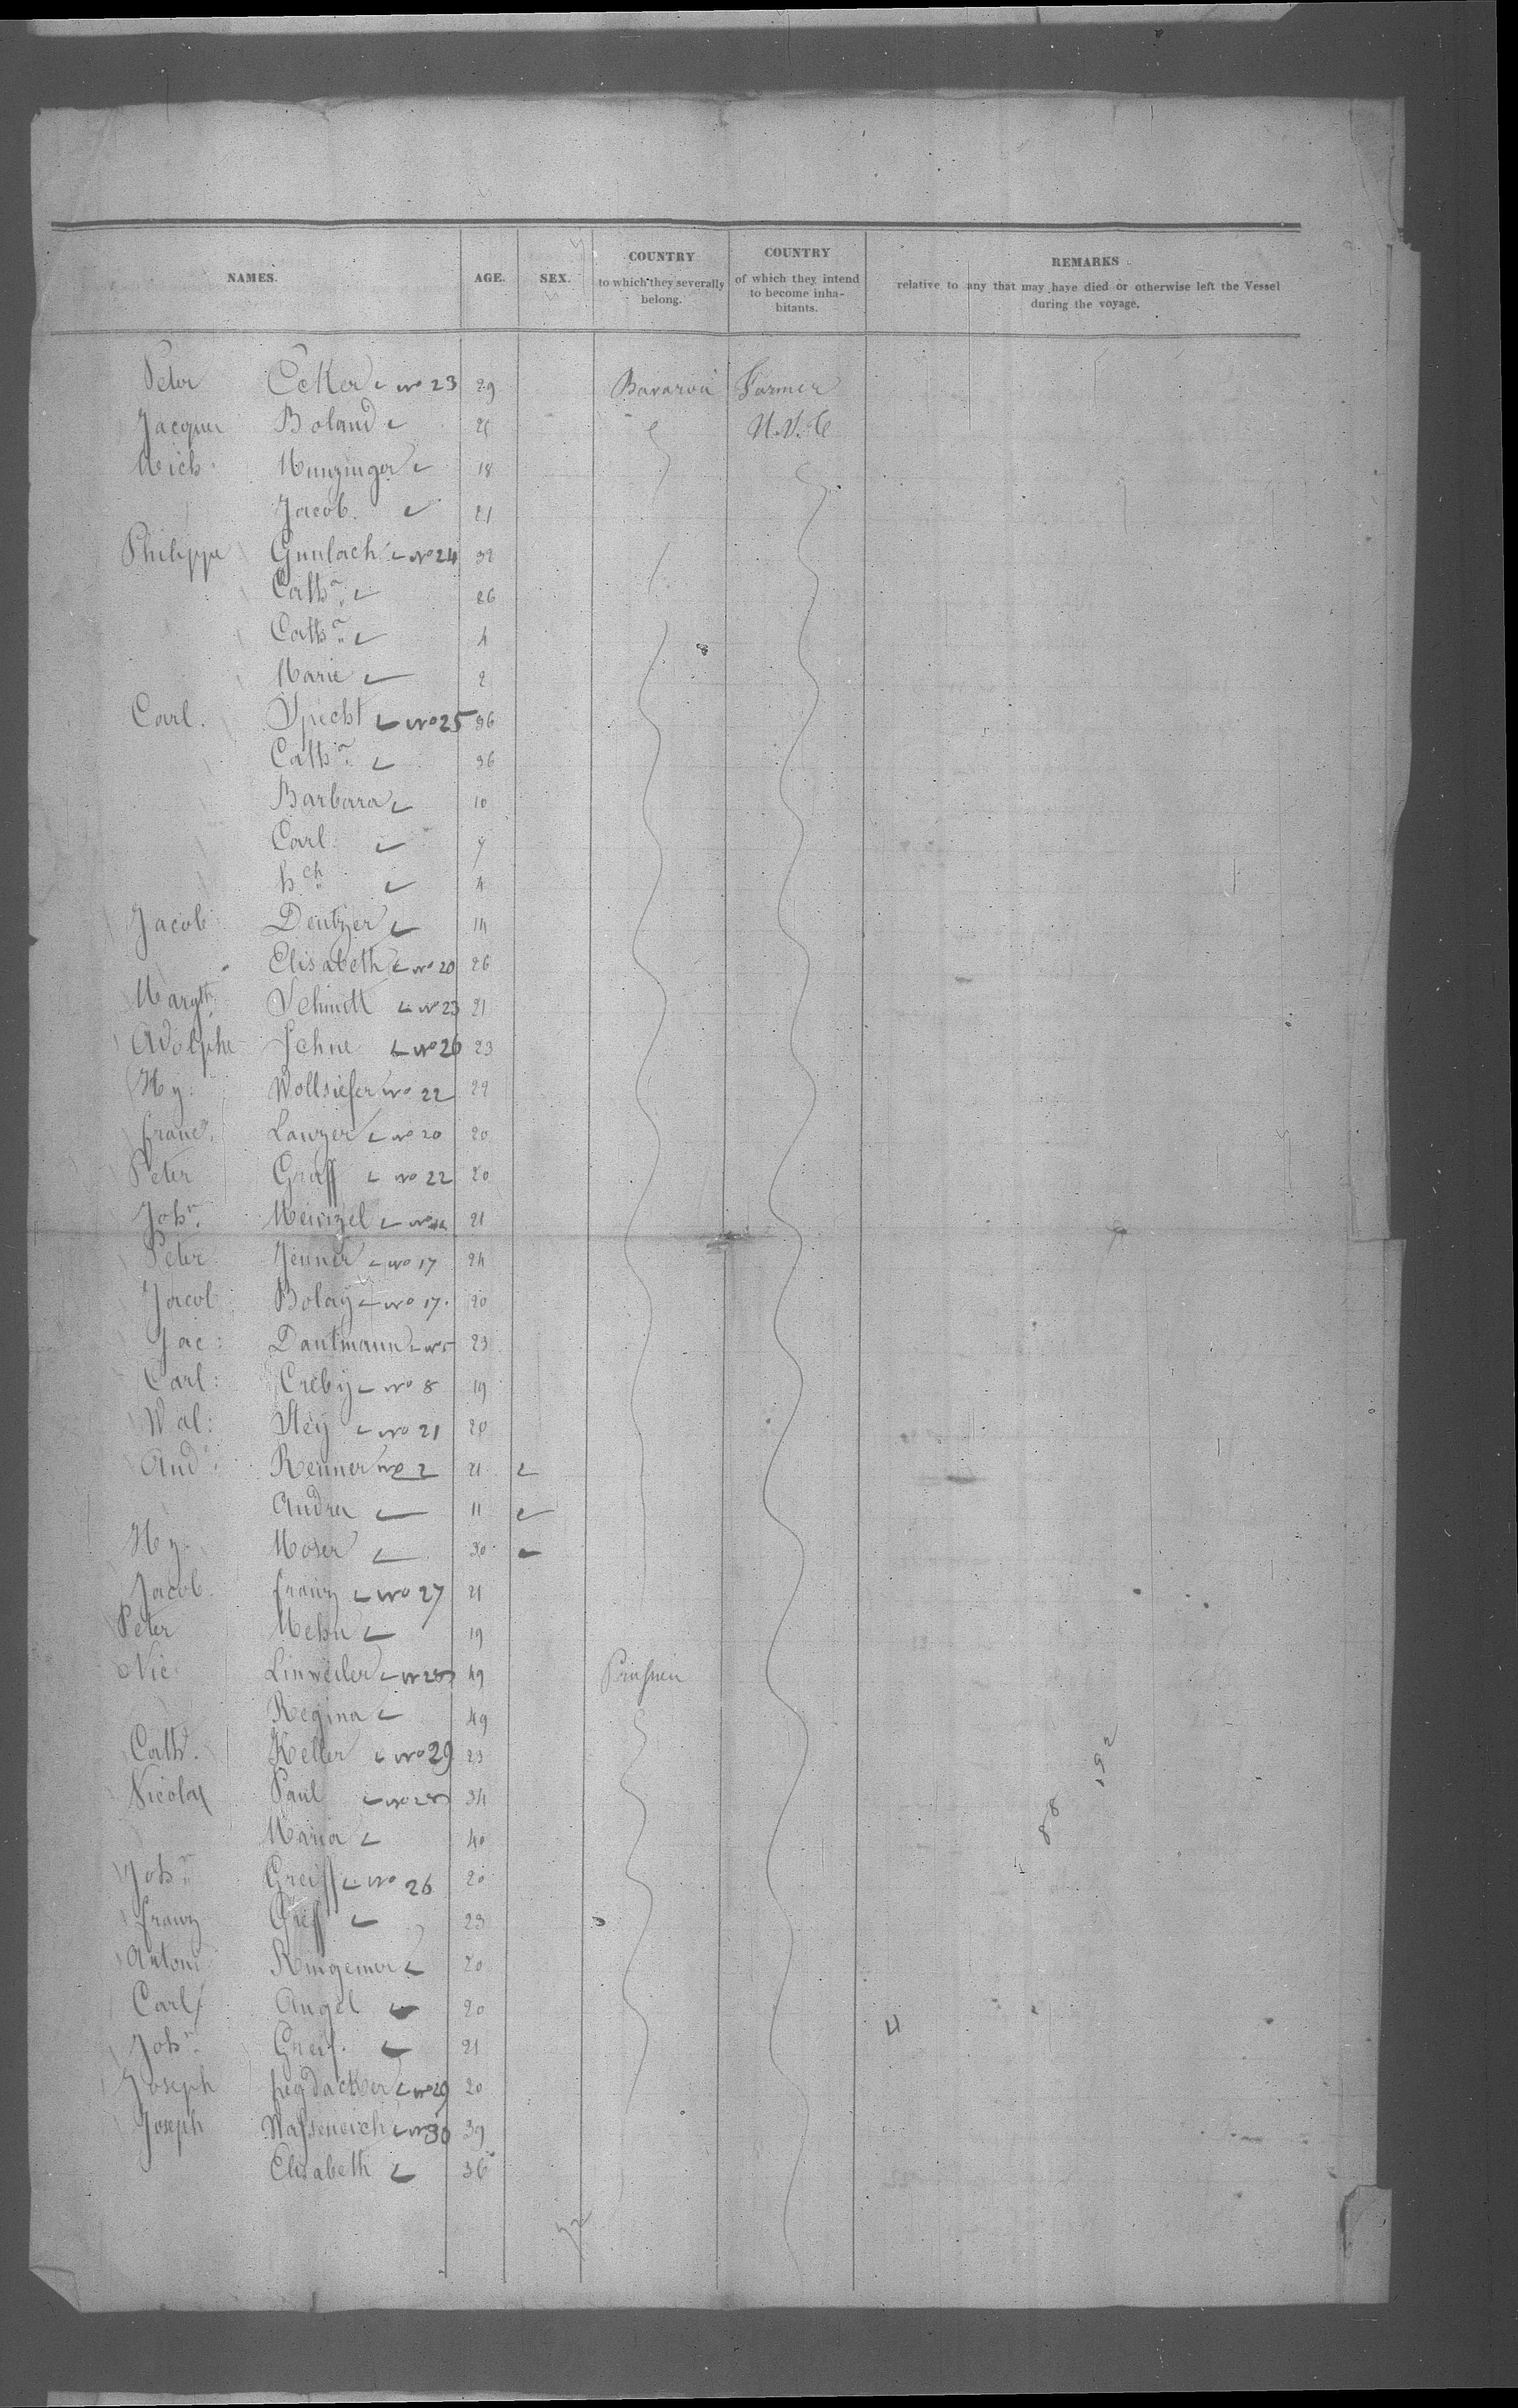 NAMES. AGE. SEX. COUNTRY to which they severally belong. COUNTRY of which they intend to become inhabitants. REMARKS relative to any that may have died or otherwise left the Vessel during the voyage.
Peter Ecker No 23 29 Bavaria Farmer
Jacques Boland 26 U.S.
Mich. Munzinger 18
Jacob. 21
Philippe Gunlach No 24 32
Cathn. 26
Cathn. 4
Marie 2
Carl. Specht No 25 36
Cathn. 36
Barbara 10
Carl. 7
hch 4
Jacob Deutzer 14
Elisabeth No 20 26
Margth. Schmitt No 23 21
Adolphe Jehne No 26 23
Hy. Wollsiefer No 22 22
franc. Lauzer No 20 20
Peter Graff No 22 20
John. Meinzel 21
Peter Jenner No 17 24
Jacob Bolay No 17. 20
Jac: Dautmann 23
Carl: Creby No 8 19
Wal: Steÿ No 21 20
And. Renner No 2 21
Andrea 11
Hy. Moser 30
Jacob. franz No 27 21
Peter Mehn 19
Nic Linweiler No 28 49
Regina 49
Cath. Keller No 29 23
Nicolas Paul No 28 34
Maria 40
John. Greiff No 26 20
franz Greff 23
Anton 20
Carl Angel 20
John. Greif. 21
Joseph No 29 20
Joseph No 30 39
Elisabeth 36
88
192